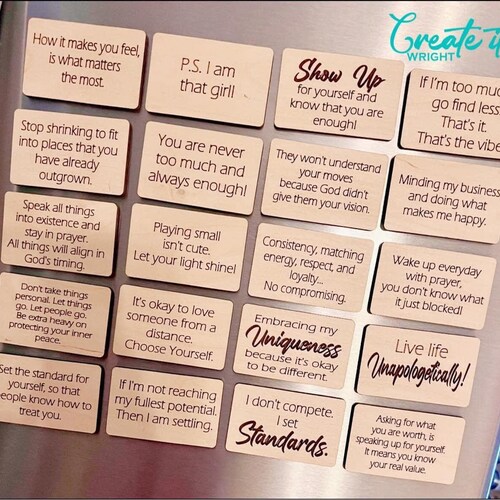 Create it
WRIGHT
How it makes you feel,
is what matters
the most.
P.S. I am
that girl!
Show Up
for yourself and
know that you are
enough!
If I'm too much
go find less.
That's it.
That's the vibe.
Stop shrinking to fit
into places that you
have already
outgrown.
You are never
too much and
always enough!
They won't understand
your moves
because God didn't
give them your vision.
Minding my business
and doing what
makes me happy.
Speak all things
into existence and
stay in prayer.
All things will align in
God's timing.
Playing small
isn't cute.
Let your light shine!
Consistency, matching
energy, respect, and
loyalty...
No compromising.
Wake up everyday
with prayer,
you don't know what
it just blocked!
Don't take things
personal. Let things
go. Let people go.
Be extra heavy on
protecting your inner
peace.
It's okay to love
someone from a
distance.
Choose Yourself.
Embracing my
Uniqueness
because it's okay
to be different.
Live life
Unapologetically!
Set the standard for
yourself, so that
people know how to
treat you.
If I'm not reaching
my fullest potential.
Then I am settling.
I don't compete.
I set
Standards.
Asking for what
you are worth, is
speaking up for yourself.
It means you know
your real value.